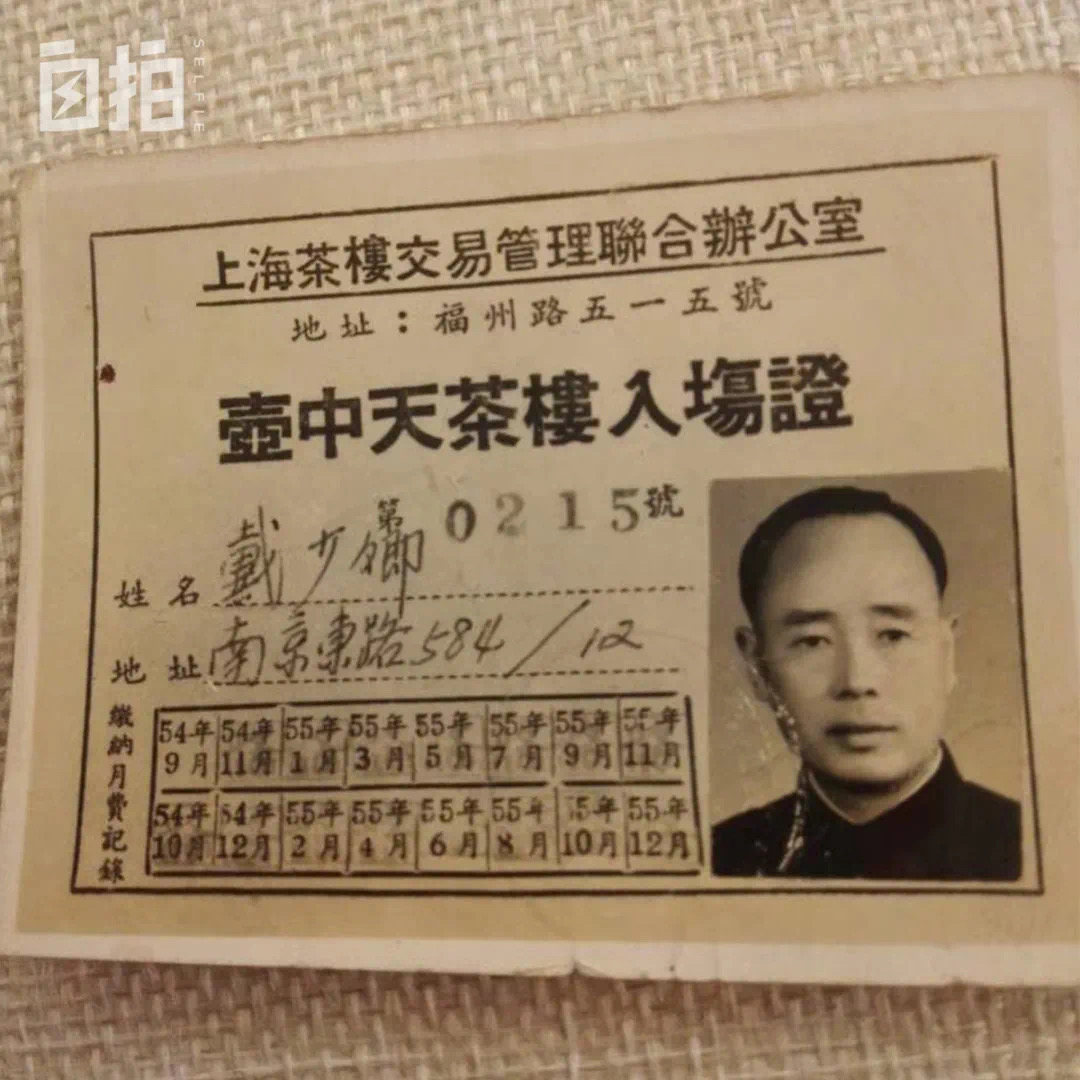 自拍
SELFIE
上海茶樓交易管理聯合辦公室
地址：福州路五一五號
壺中天茶樓入場證
第0215號
姓名 戴少卿
地址 南京東路584/12
繳納月費記錄
54年9月 54年11月 55年1月 55年3月 55年5月 55年7月 55年9月 55年11月
54年10月 54年12月 55年2月 55年4月 55年6月 55年8月 55年10月 55年12月